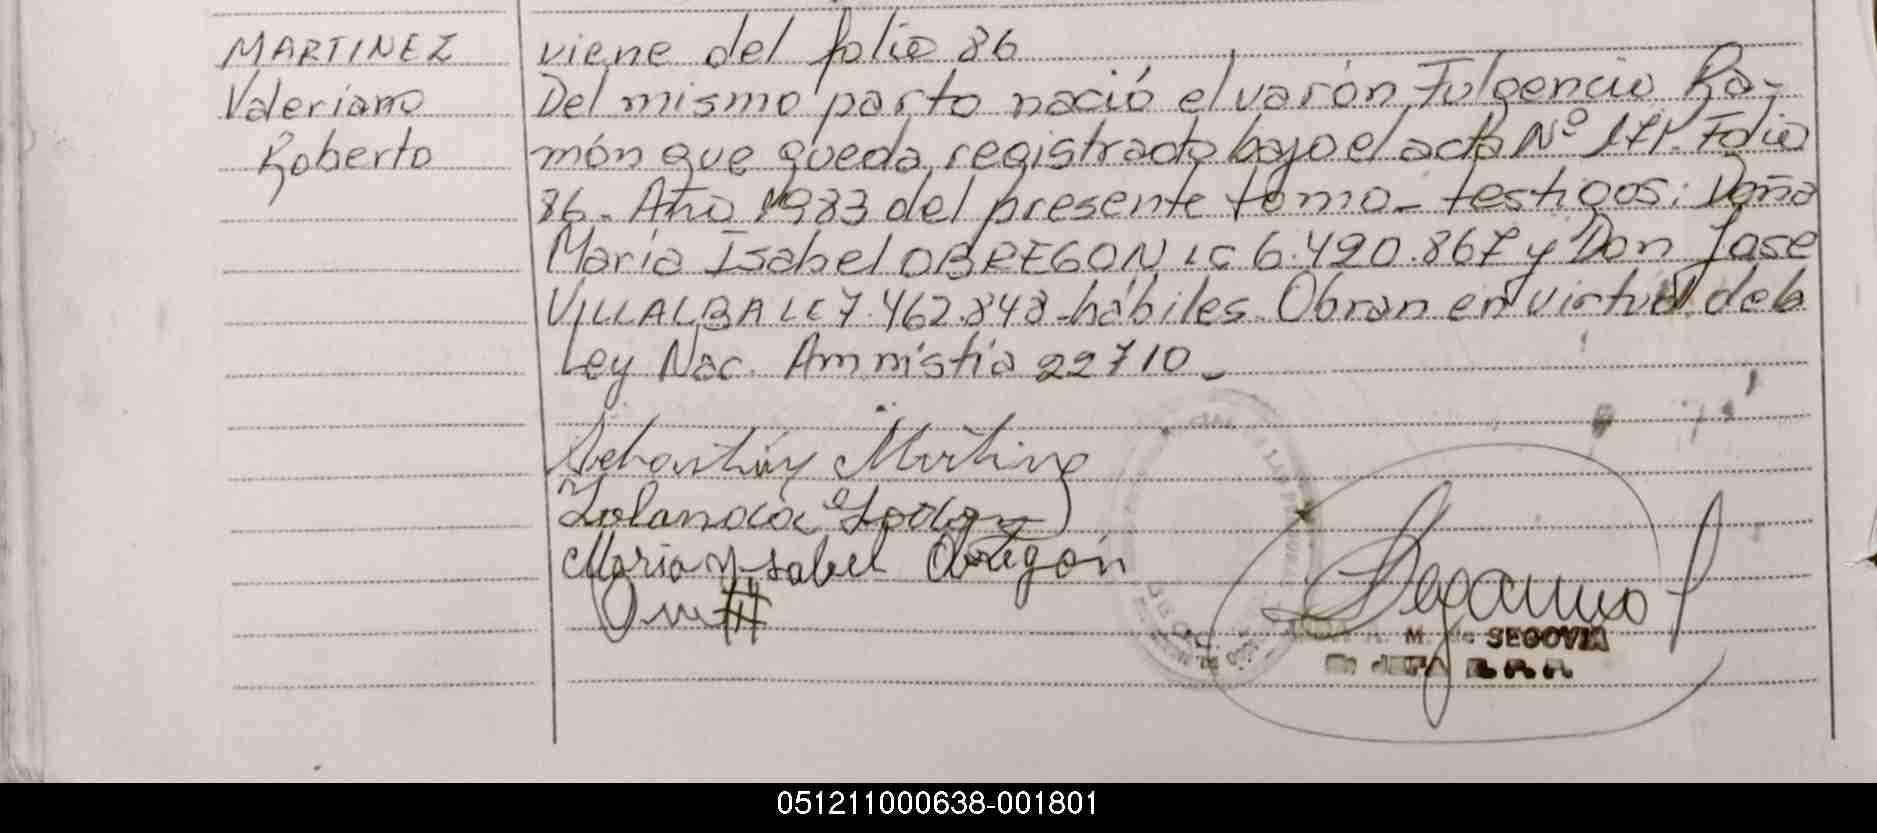 MARTINEZ
Valeriano
Roberto
viene del folio 86
Del mismo parto nació el varón, Fulgencio Ra-
món que queda registrado bajo el acta Nº 171. Folio
86. Año 1983 del presente tomo_ testigos: Doña
María Isabel OBREGON LC 6.490.867 y Don Jose
VILLALBA LE 7.462.848 hábiles. Obran en virtud de la
Ley Nac. Amnistía 22710_
Sebastián Martinez
Maria Ysabel Obregón
M. de SEGOVIA
JEFA
051211000638-001801